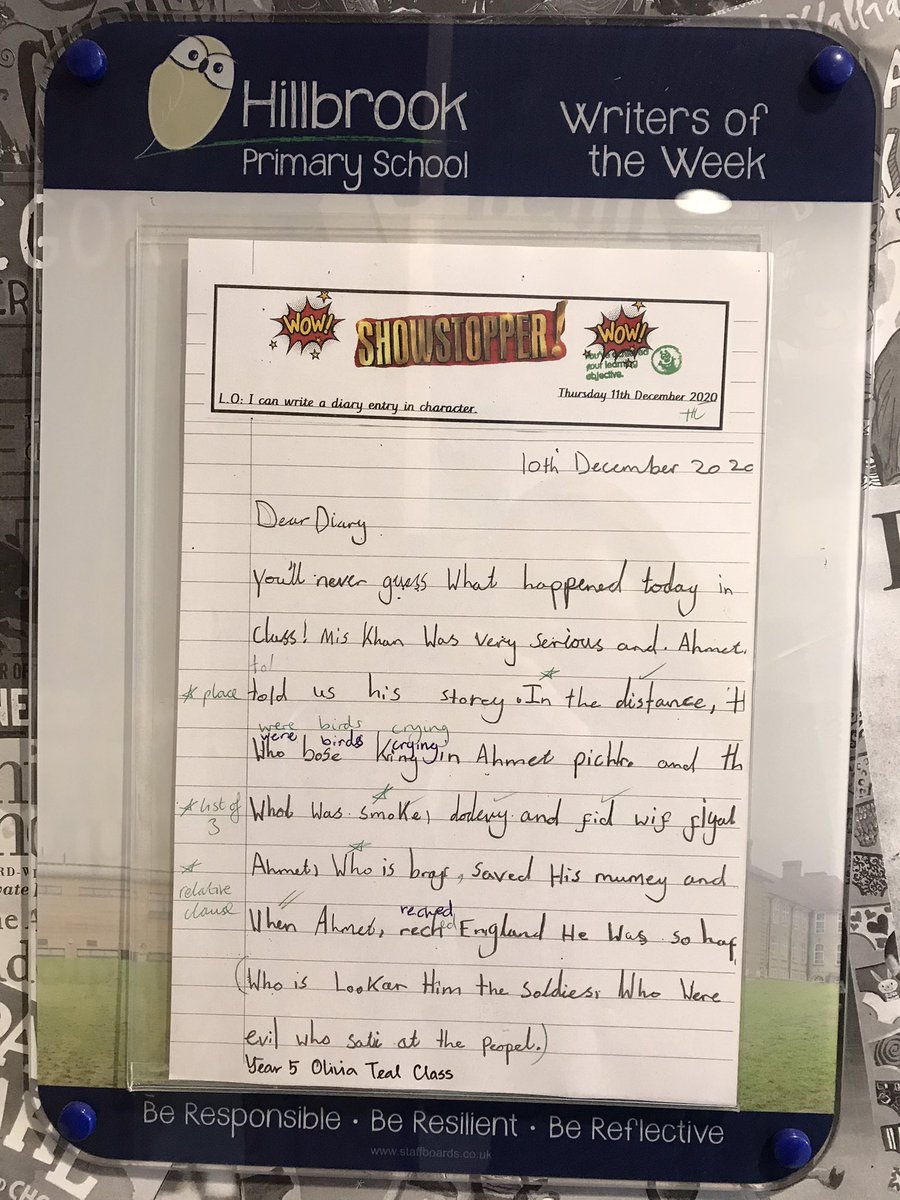 Hillbrook
Primary School
Writers of
the Week
WOW!
SHOWSTOPPER!
WOW!
You've achieved
your learning
objective.
L.O: I can write a diary entry in character.
Thursday 11th December 2020
10th December 2020
Dear Diary
You'll never guess What happened today in
Class! Mis Khan Was very Serious and. Ahmet.
tol
★ place
told us his storey. In the distance, t
were birds crying
were birds crying
Who bose King in Ahmet pichtr and th
★ list of
3
What was smoke, and fid wif
★
relative
clause
Ahmet, Who is braf, saved His mumey and
reched
When Ahmet, reched England He Was so hap
(Who is Lookar Him the Soldies, Who Were
evil who at the Peopel.)
Year 5 Olivia Teal Class
Be Responsible · Be Resilient · Be Reflective
www.staffboards.co.uk